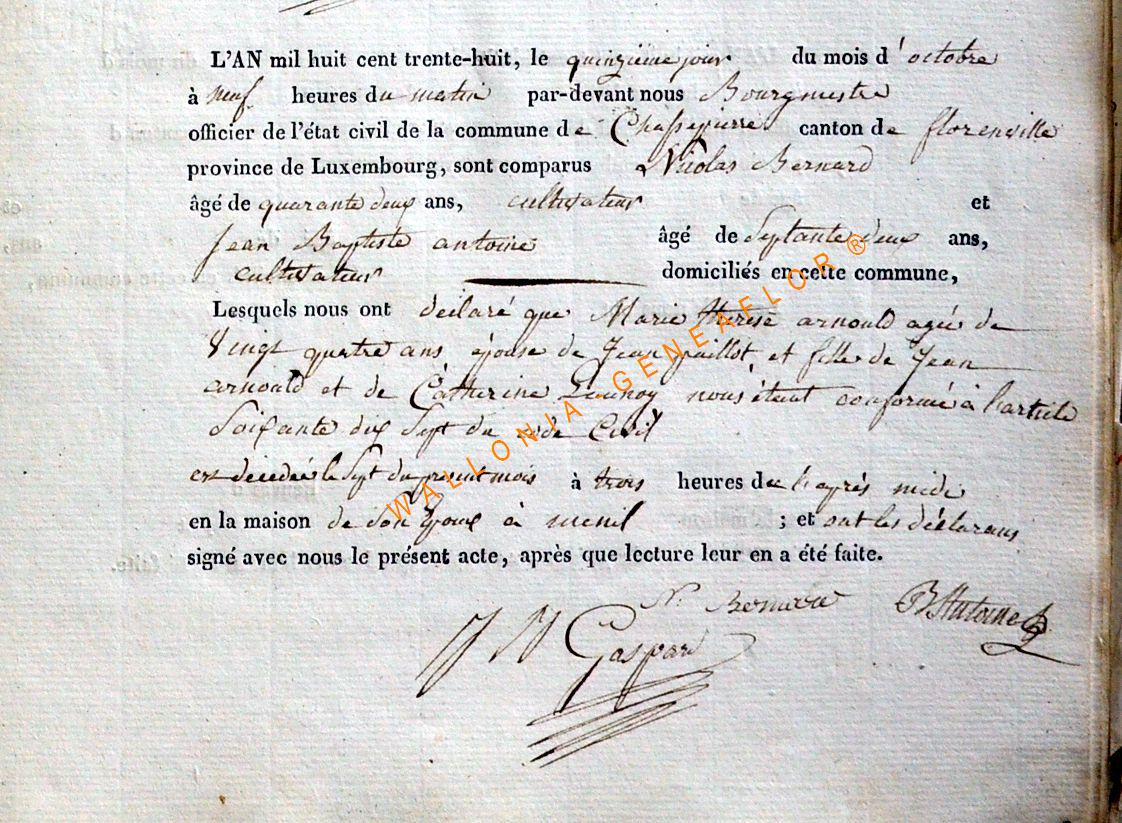 L'AN mil huit cent trente-huit, le quinzieme jour du mois d'octobre
à neuf heures du matin par-devant nous Bourgmestre
officier de l'état civil de la commune de Chassepierre canton de florenville
province de Luxembourg, sont comparus Nicolas Bernard
âgé de quarante deux ans, cultivateur et
Jean Baptiste antoine âgé de Septante deux ans,
cultivateur domiciliés en cette commune,
Lesquels nous ont déclaré que Marie therese arnould agée de
Vingt quatre ans, épouse de Jean et fille de Jean
arnould et de Catherine nous étant conformé à l'article
Soixante dix Sept du code Civil
est decedée le Sept du present mois à trois heures de l'après midi
en la maison de son Epoux à menil ; et ont les déclarans
signé avec nous le présent acte, après que lecture leur en a été faite.
N. Bernard B Antoine
Gaspard
WALLONIA GENEAFLOR ®